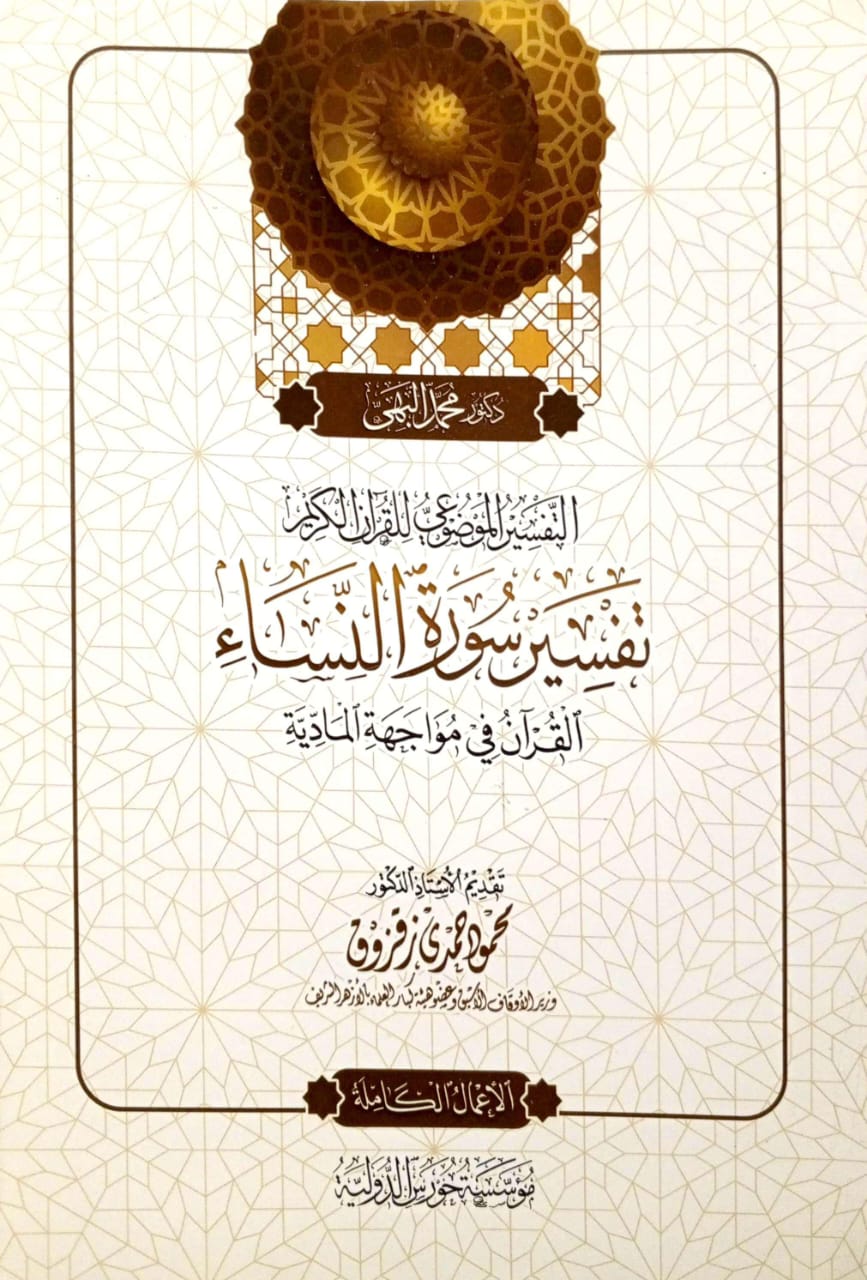 دكتور محمد البهي
التفسير الموضوعي للقرآن الكريم
تفسير سورة النساء
القرآن في مواجهة المادية
تقديم الأستاذ الدكتور
محمود حمدي زقزوق
وزير الأوقاف الأسبق وعضو هيئة كبار العلماء بالأزهر الشريف
الأعمال الكاملة
مؤسسة حورس الدولية